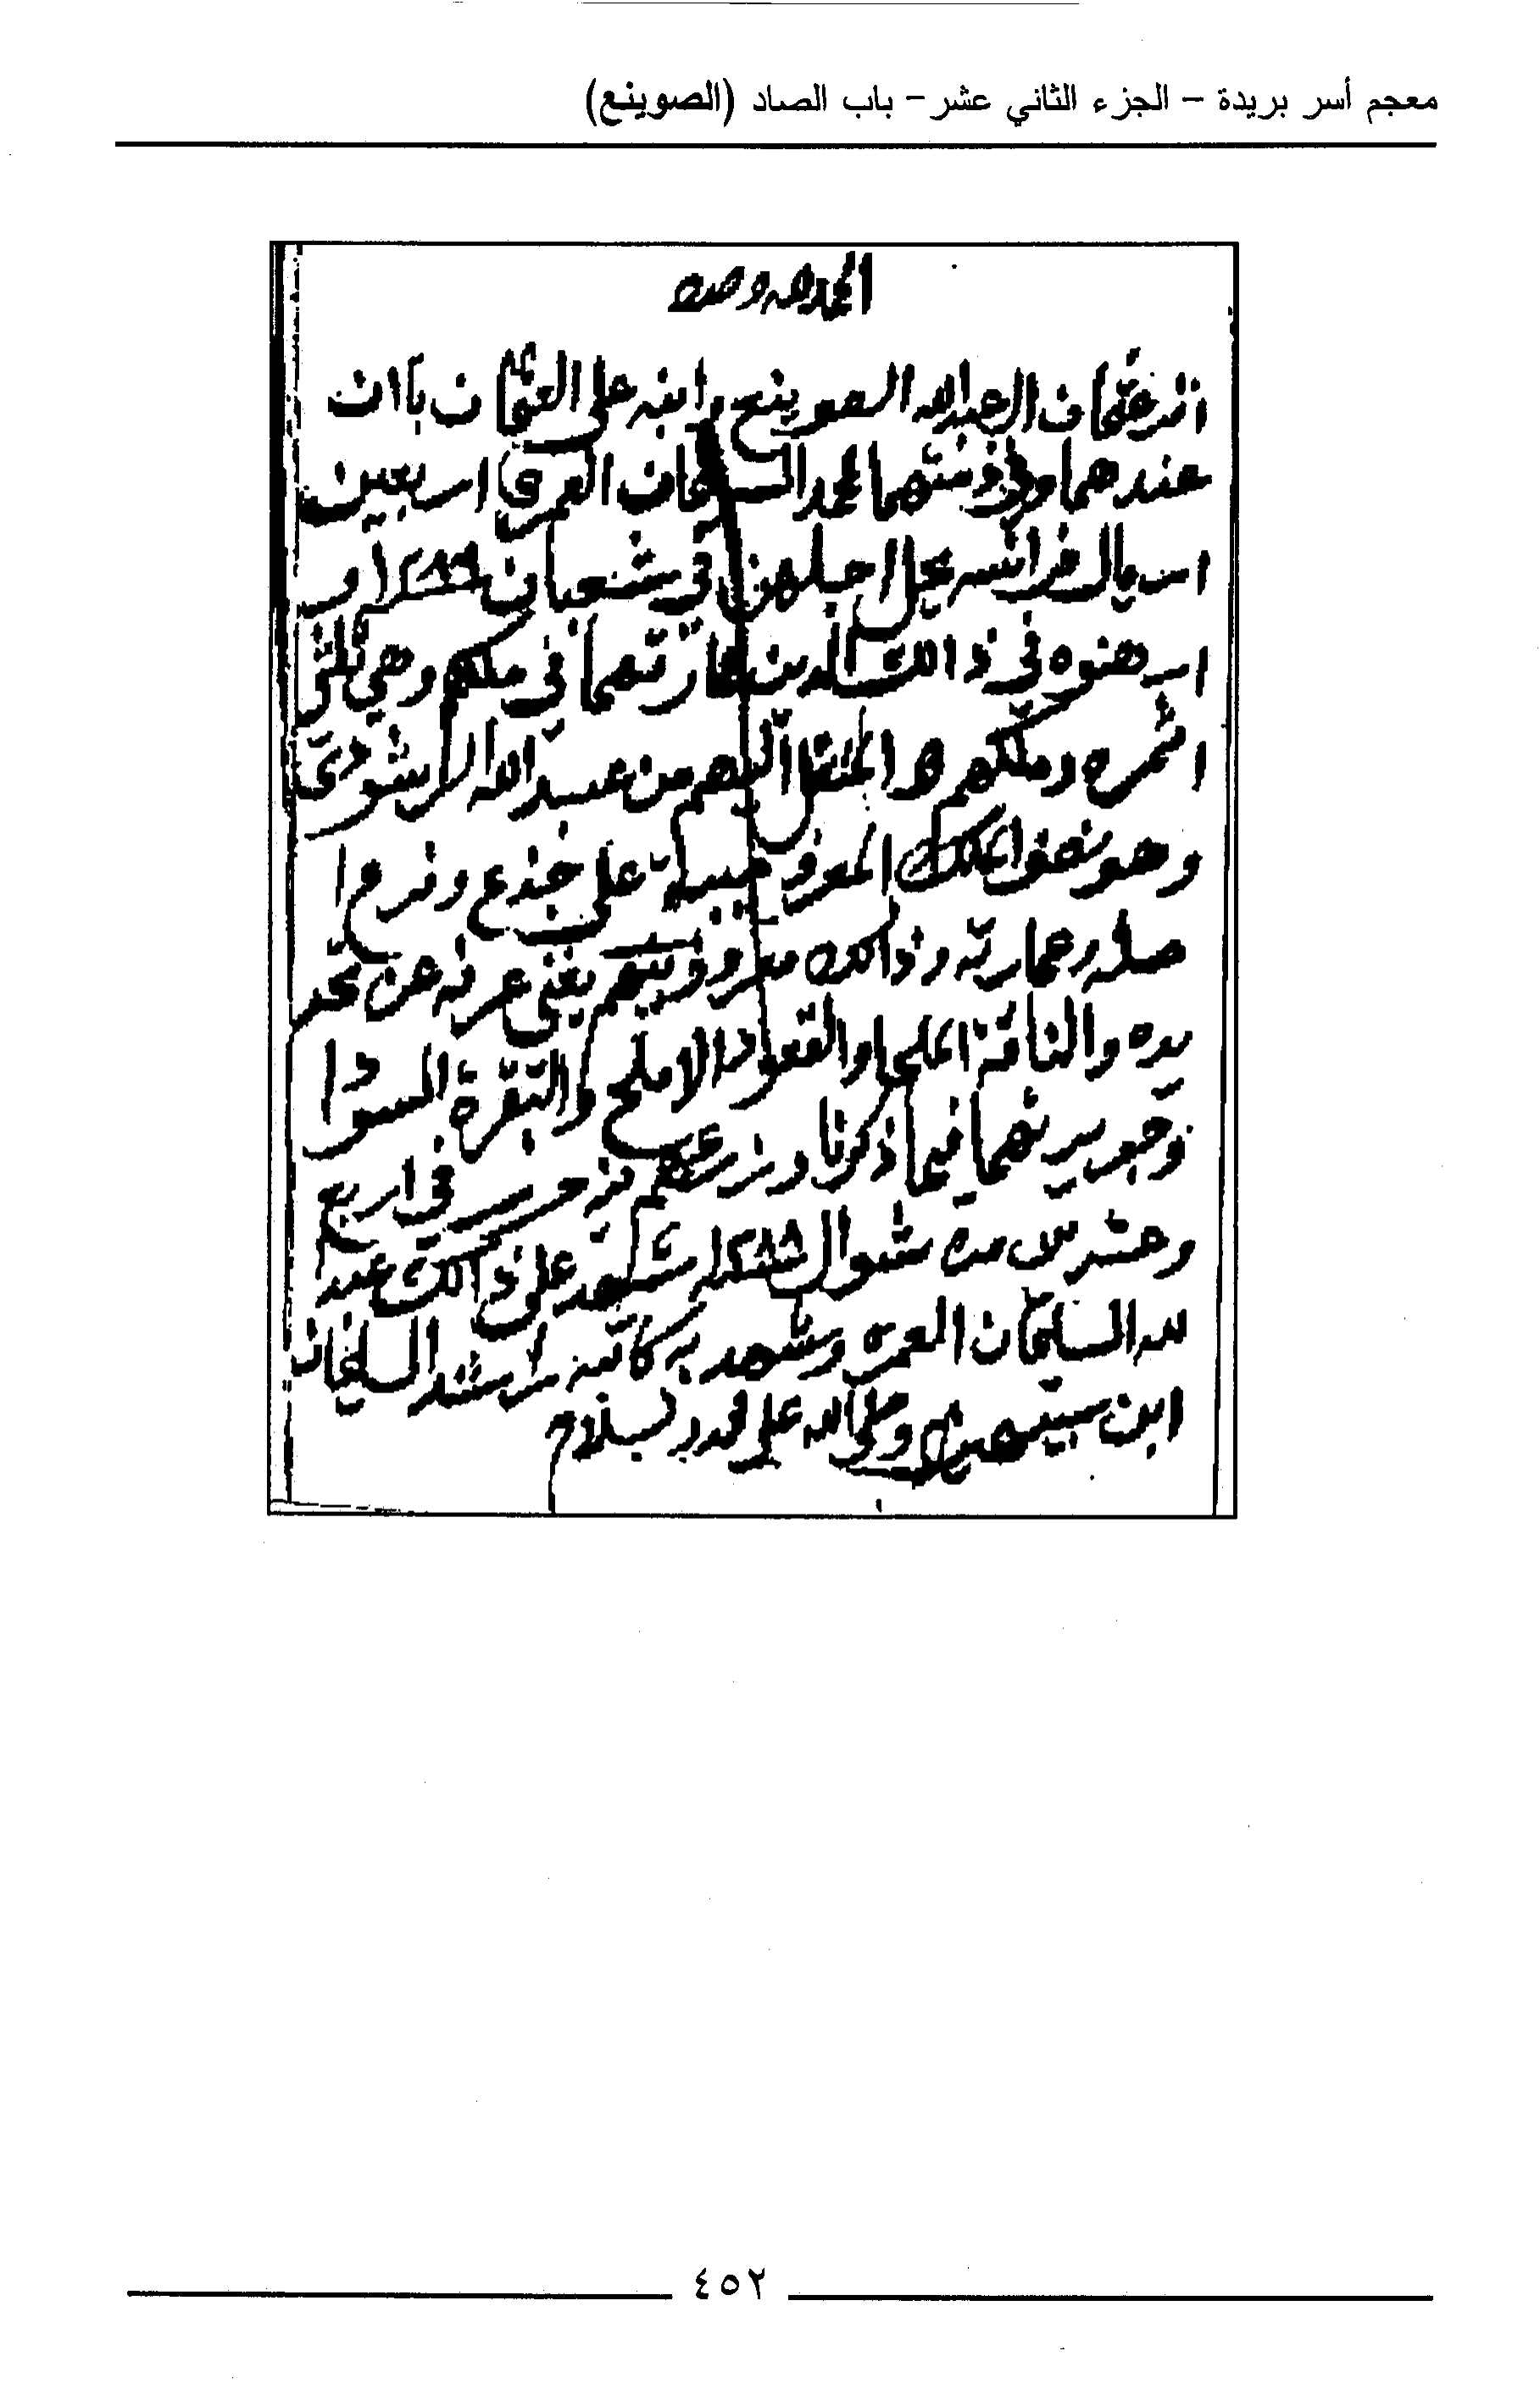 معجم أسر بريدة – الجزء الثاني عشر – باب الصاد (الصوينع)
الحمد لله وحده
اقر عثمان العبدالله الصوينع وابنه علي العثمان بأن
عندهما وفي ذمتهما لمحمد السليمان العمري اربعين
اريال فرانسه يحل اجلهن في شعبان ١٢٨٩ او
ارهنوه في ذالك الدين عمارتهما في ملكهم وهي ثلثي
الثمره وملكهم المنتقل اليهم من عبدالله الرشودي
وهو نصف الملك المعروف على جذع وفرع ا
صله وعمارته وذالك معروف بينهم يغني عرفه عن تحد
يده والناقة الملحا والقعود الاملح والبقرة السودا
وجريرتهما فيما ذكرنا وزرعهم في اربع
وعشرين من شوال ١٢٨٨ شهد على ذالك عبدا
لله السليمان العمري وشهد به كاتبه راشد السليمان
ابن سبيهين وصلى الله على محمد وسلم
٤٥٢